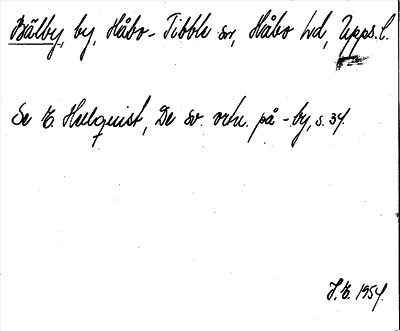 Bälby, by, Håbo-Tibble sn, Håbo hd, Upps. l.
Se E. Hellquist, De sv. ortn. på -by, s. 34.
H. E. 1954.